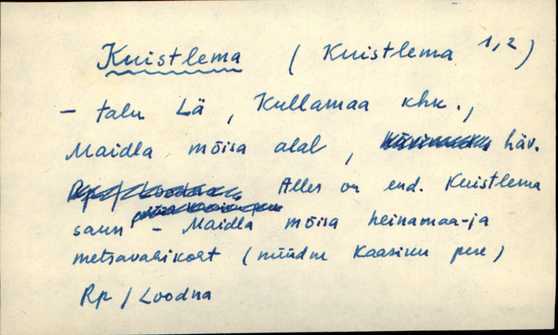 Kuistlema ( Kuistlema 1,2)
- talu Lä, Kullamaa khk.,
Maidla mõisa alal, häv.
Alles on end. Kuistlema
saun - Maidla mõisa heinamaa-ja
metsavahikoht (nüüdne Kaasiku pere)
Rp / Loodna